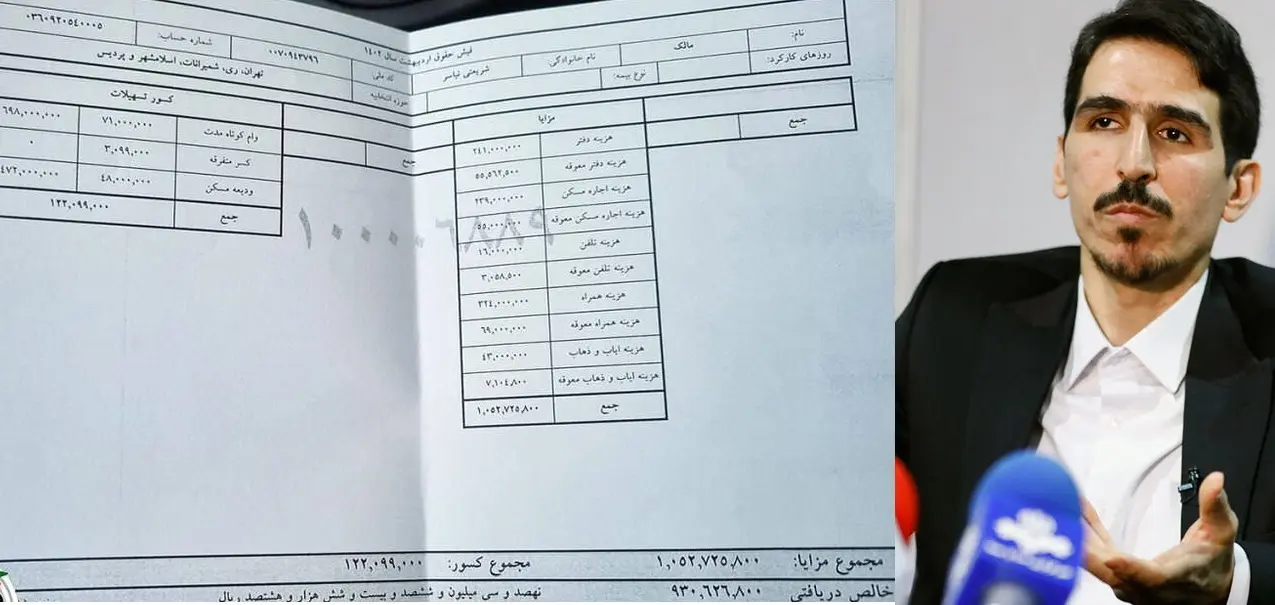 نام: مالک نام خانوادگی شریعتی نیاسر
روزهای کارکرد: نوع بیمه:
جمع
مزایا
هزینه دفتر ۲۴۱,۰۰۰,۰۰۰
هزینه دفتر معوقه ۵۵,۵۶۲,۵۰۰
هزینه اجاره مسکن ۲۳۹,۰۰۰,۰۰۰
هزینه اجاره مسکن معوقه ۵۵,۰۰۰,۰۰۰
هزینه تلفن ۱۶,۰۰۰,۰۰۰
هزینه تلفن معوقه ۳,۰۵۸,۵۰۰
هزینه همراه ۳۲۴,۰۰۰,۰۰۰
هزینه همراه معوقه ۶۹,۰۰۰,۰۰۰
هزینه ایاب و ذهاب ۴۳,۰۰۰,۰۰۰
هزینه ایاب و ذهاب معوقه ۷,۱۰۴,۸۰۰
جمع ۱,۰۵۲,۷۲۵,۸۰۰
فیش حقوقی اردیبهشت سال ۱۴۰۲
کد ملی ۰۰۷۰۹۴۳۷۹۶ شماره حساب: ۰۳۶۰۹۲۰۵۴۰۰۰۵
حوزه انتخابیه تهران، ری، شمیرانات، اسلامشهر و پردیس
جمع
کسور تسهیلات
وام کوتاه مدت ۷۱,۰۰۰,۰۰۰ ۶۹۸,۰۰۰,۰۰۰
کسر متفرقه ۳,۰۹۹,۰۰۰ ۰
ودیعه مسکن ۴۸,۰۰۰,۰۰۰ ۴۷۲,۰۰۰,۰۰۰
جمع ۱۲۲,۰۹۹,۰۰۰
مجموع مزایا: ۱,۰۵۲,۷۲۵,۸۰۰ مجموع کسور: ۱۲۲,۰۹۹,۰۰۰
خالص دریافتی ۹۳۰,۶۲۶,۸۰۰ نهصد و سی میلیون و ششصد و بیست و شش هزار و هشتصد ریال